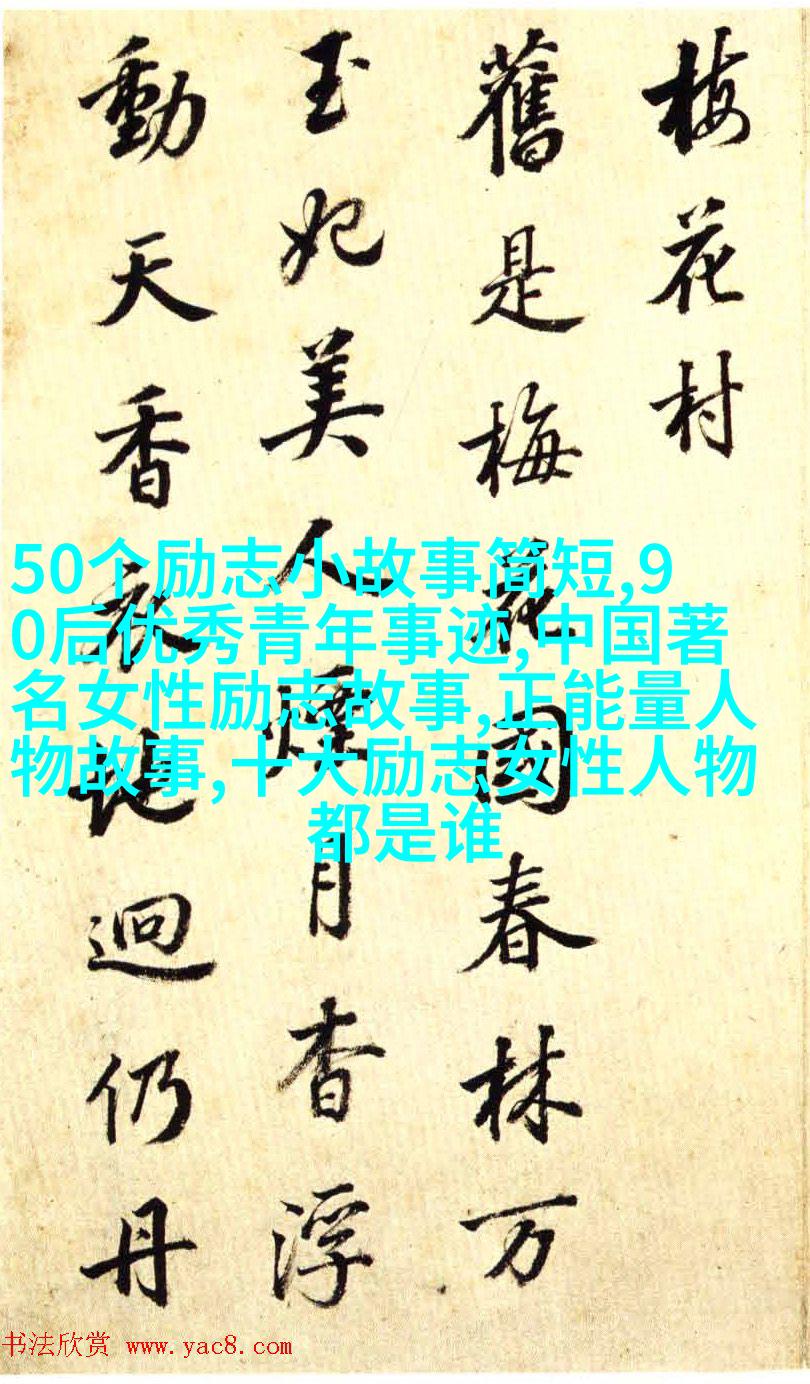 梅花村
舊是梅花國春林万
玉妃美人煙月杳浮
動天香衣地迥仍丹
50个励志小故事简短,9
0后优秀青年事迹,中国著
名女性励志故事,正能量人
物故事,十大励志女性人物
都是谁
书法欣赏 www.yac8.com